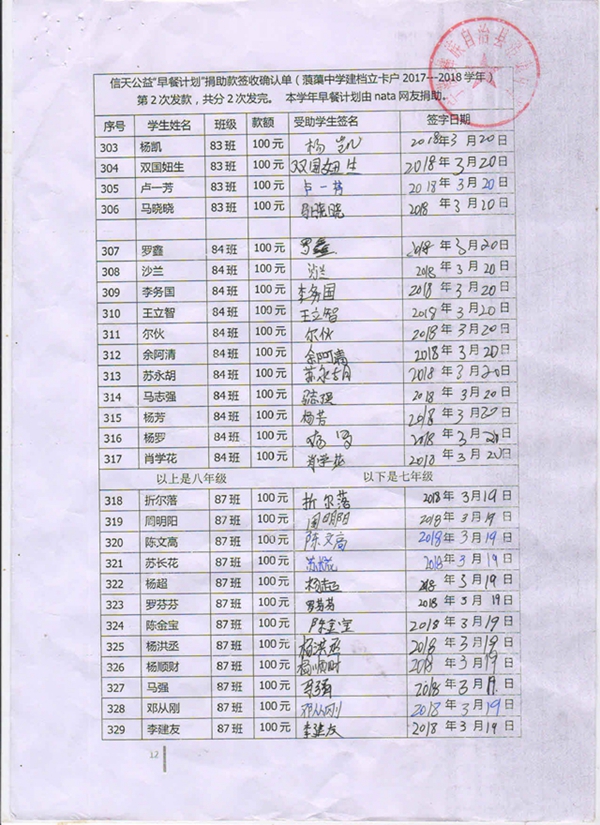 族自治县
信天公益“早餐计划”捐助款签收确认单（蒗蕖中学建档立卡户 2017---2018 学年）
第 2 次发款，共分 2 次发完。 本学年早餐计划由 nata 网友捐助。
序号 学生姓名 班级 款额 受助学生签名 签字日期
303 杨凯 83 班 100 元 杨凯 2018年3月20日
304 双国妞生 83 班 100 元 双国妞生 2018年3月20日
305 卢一芳 83 班 100 元 卢一芳 2018年3月20日
306 马晓晓 83 班 100 元 马晓晓 2018年3月20日
307 罗鑫 84 班 100 元 罗鑫 2018年3月20日
308 沙兰 84 班 100 元 沙兰 2018年3月20日
309 李务国 84 班 100 元 李务国 2018年3月20日
310 王立智 84 班 100 元 王立智 2018年3月20日
311 尔伙 84 班 100 元 尔伙 2018年3月20日
312 余阿清 84 班 100 元 余阿清 2018年3月20日
313 苏永胡 84 班 100 元 苏永胡 2018年3月20日
314 马志强 84 班 100 元 马志强 2018年3月20日
315 杨芳 84 班 100 元 杨芳 2018年3月20日
316 杨罗 84 班 100 元 杨罗 2018年3月20日
317 肖学花 84 班 100 元 肖学花 2018年3月20日
以上是八年级 以下是七年级
318 折尔落 87 班 100 元 折尔落 2018年3月19日
319 周明阳 87 班 100 元 周明阳 2018年3月19日
320 陈文高 87 班 100 元 陈文高 2018年3月19日
321 苏长花 87 班 100 元 苏长花 2018年3月19日
322 杨超 87 班 100 元 杨超 2018年3月19日
323 罗芬芬 87 班 100 元 罗芬芬 2018年3月19日
324 陈金宝 87 班 100 元 陈金宝 2018年3月19日
325 杨洪丞 87 班 100 元 杨洪丞 2018年3月19日
326 杨顺财 87 班 100 元 杨顺财 2018年3月19日
327 马强 87 班 100 元 马强 2018年3月19日
328 邓从刚 87 班 100 元 邓从刚 2018年3月19日
329 李建友 87 班 100 元 李建友 2018年3月19日
12